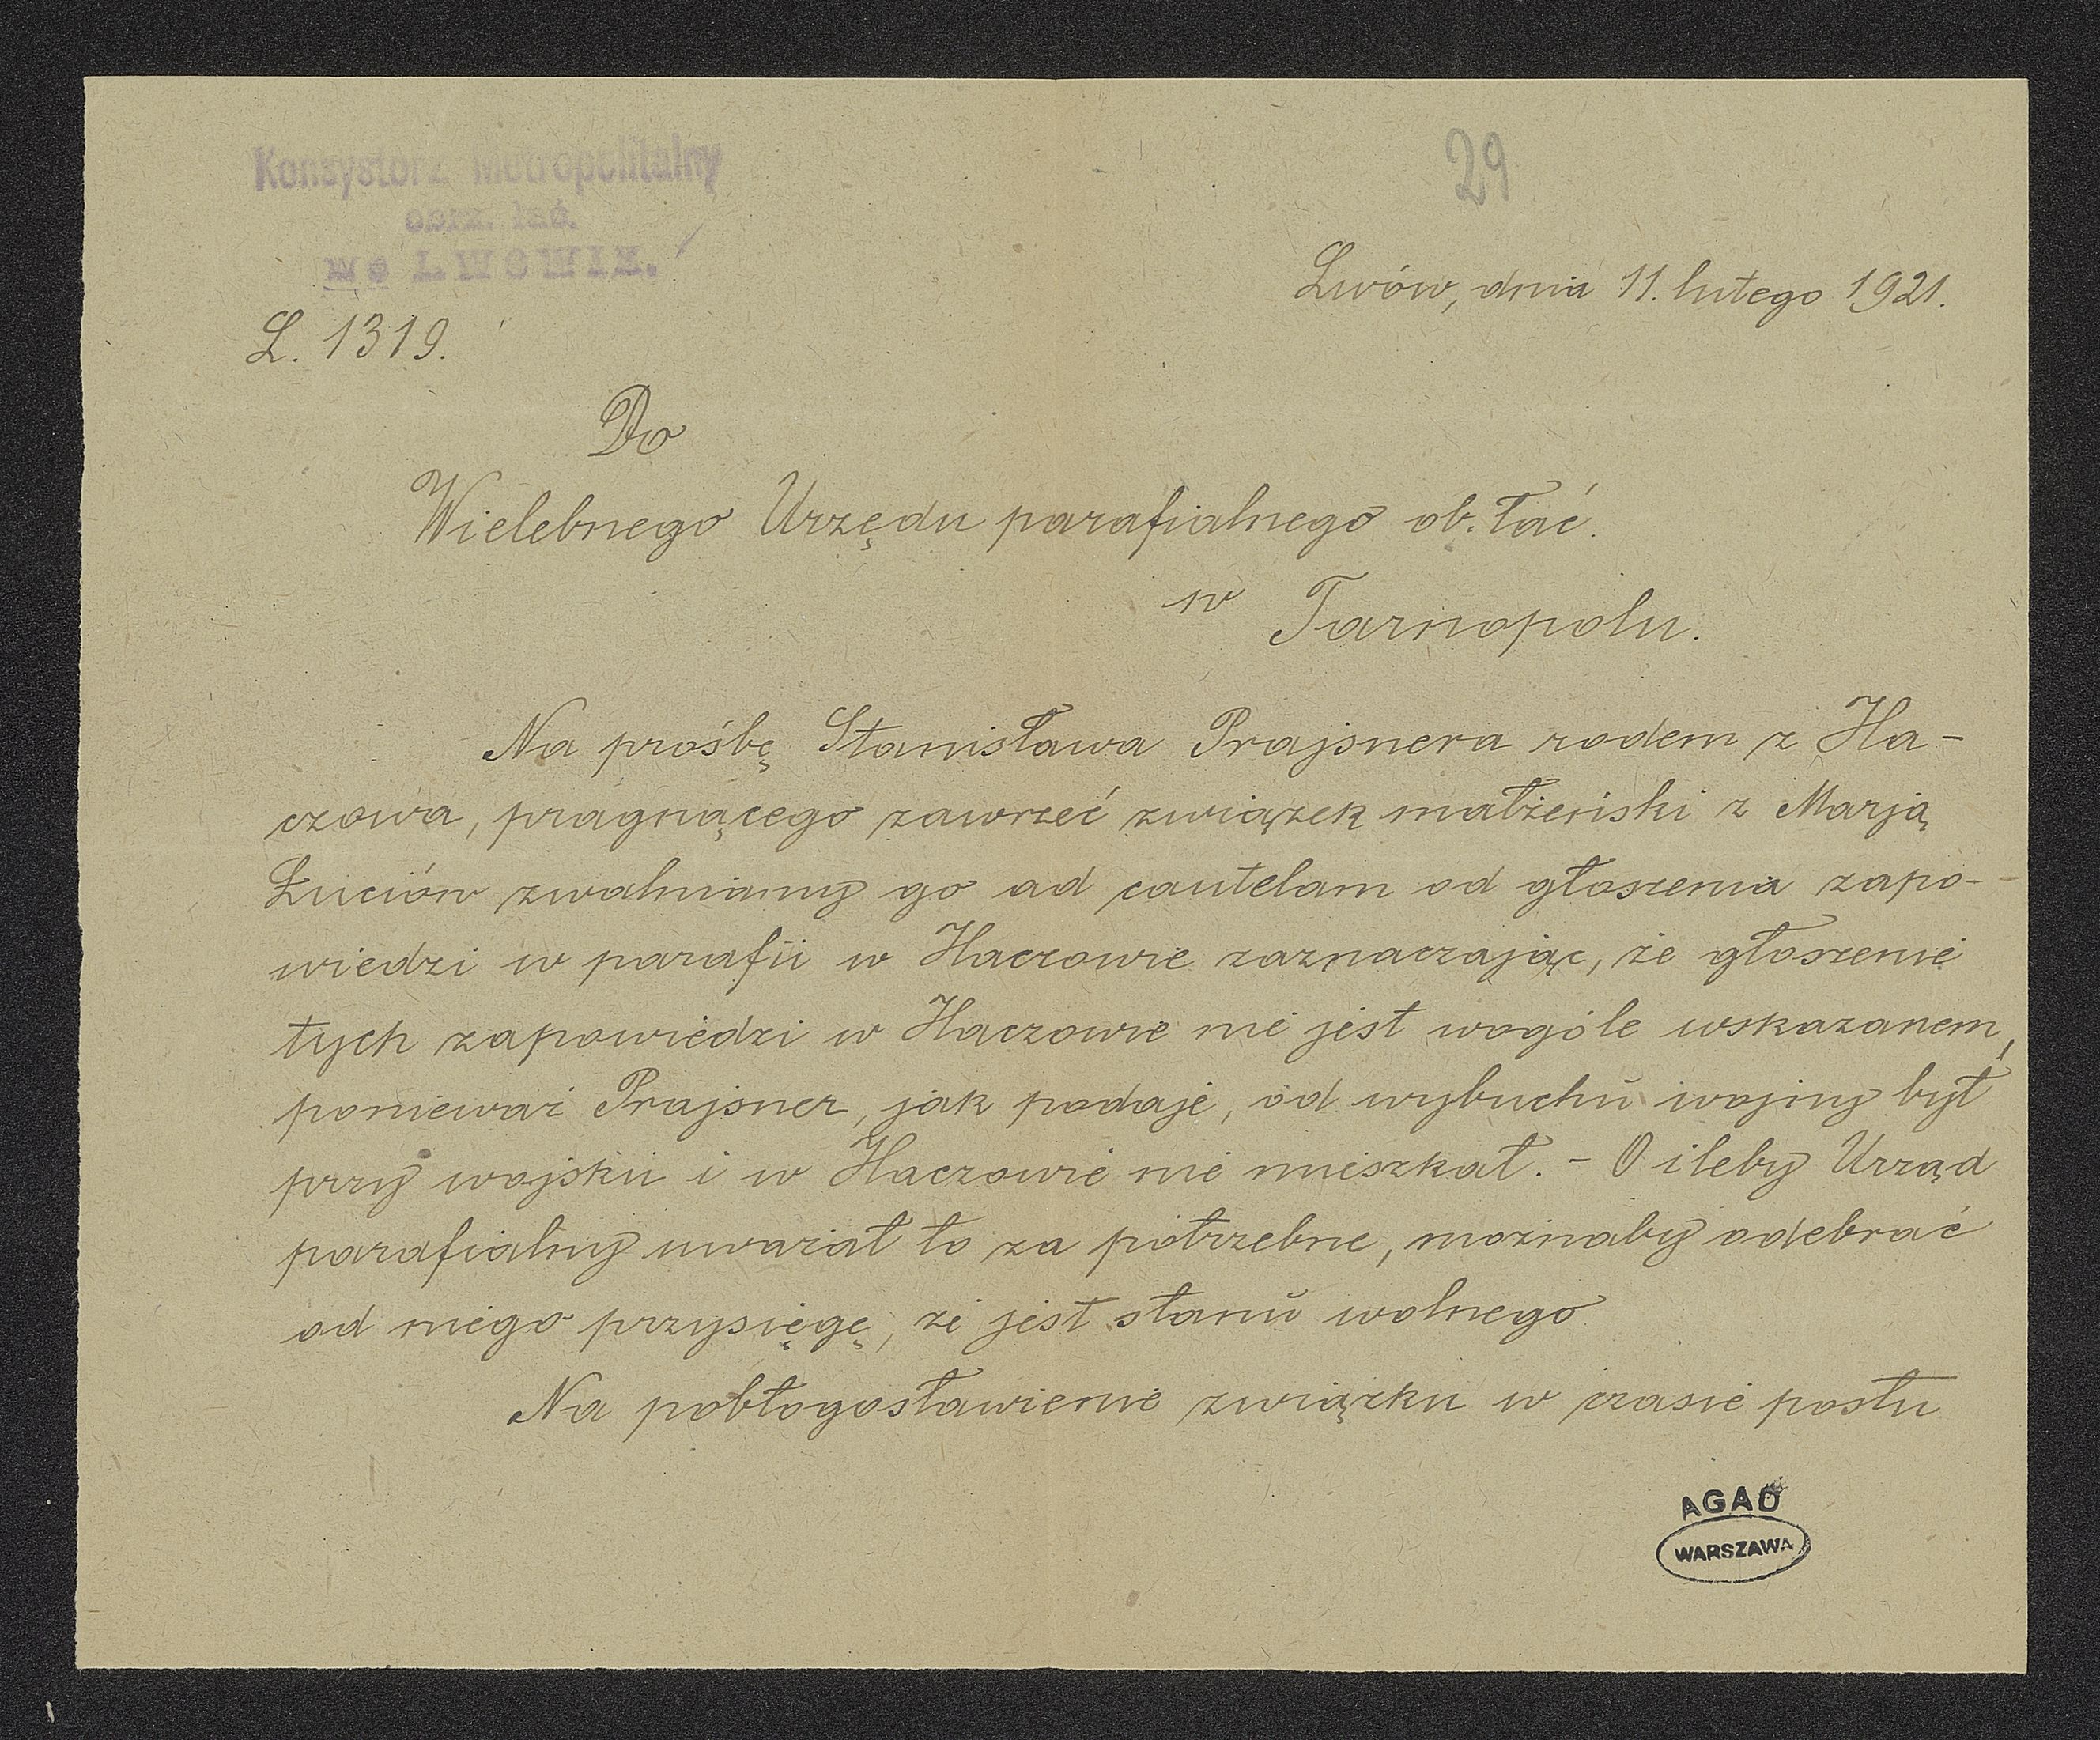 Konsystorz Metropolitalny
obrz. łać.
we LWOWIE.
29
Lwów, dnia 11. lutego 1921.
L. 1319.
Do
Wielebnego Urzędu parafialnego ob. łać.
w Tarnopolu.
Na prośbę Stanisława Prajsnera rodem z Ha-
czowa, pragnącego zawrzeć związek małżeński z Marją
Łuciów zwalniamy go ad cautelam od głoszenia zapo-
wiedzi w parafii w Haczowie zaznaczając, że głoszenie
tych zapowiedzi w Haczowie nie jest wogóle wskazanem,
ponieważ Prajsner, jak podaje, od wybuchu wojny był
przy wojsku i w Haczowie nie mieszkał. - O ileby Urząd
parafialny uważał to za potrzebne, możnaby odebrać
od niego przysięgę, że jest stanu wolnego
Na pobłogosławienie związku w czasie postu
AGAD
WARSZAWA